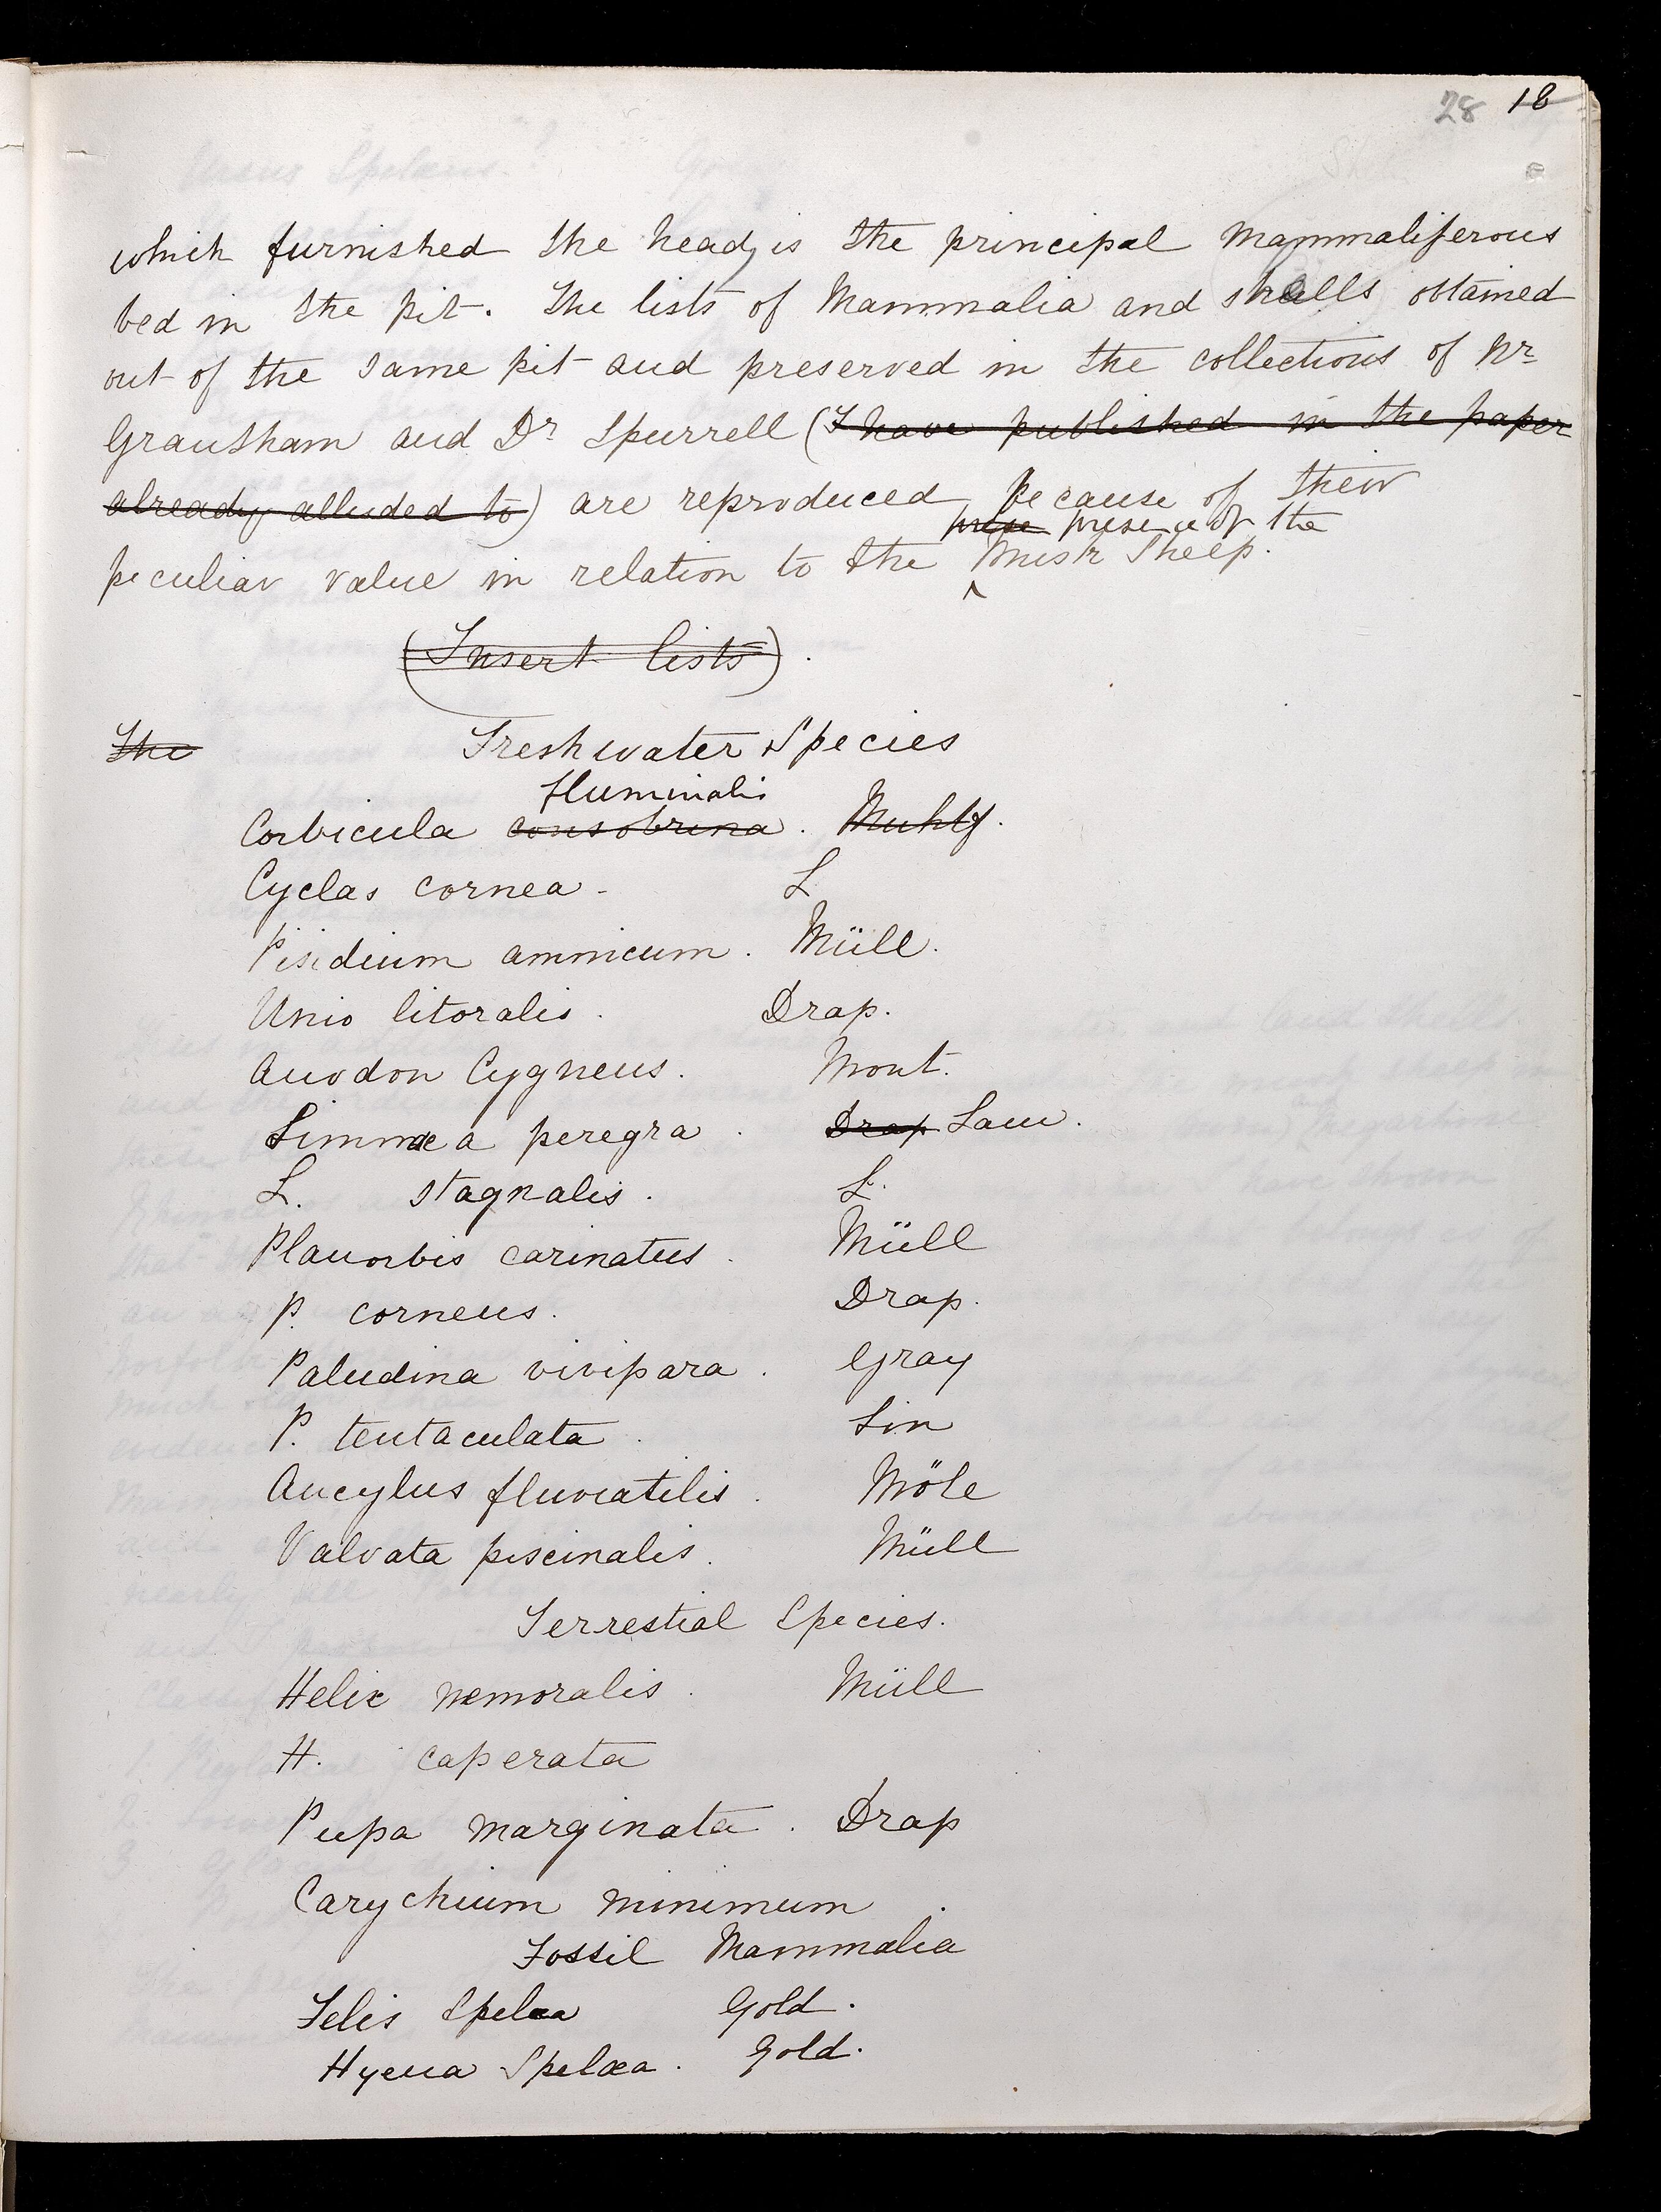 28 18
which furnished the head, is the principal Mammaliferous
bed in the pit. The lists of Mammalia and shells obtained
out of the same pit and preserved in the collections of Mr
Grantham and Dr Spurrell (I have published in the paper
already alluded to) are reproduced because of their
prese presence of the
peculiar value in relation to the ^ Musk Sheep.
(Insert lists).
The Freshwater Species
fluminalis
Corbicula consobrina. Muhlf.
Cyclas cornea - L
Pisidium amnicum. Müll.
Unio litoralis. Drap.
Anodon Cygneus. Mont.
Limnæa peregra. Drap Lam.
L. stagnalis. L.
Planorbis carinatus. Müll
P. corneus. Drap.
Paludina vivipara. Gray
P. tentaculata. Lin
Ancylus fluviatilis. Möle
Valvata piscinalis. Müll
Terrestial Species.
Helix nemoralis. Müll
H. caperata
Pupa marginata. Drap
Carychium minimum.
Fossil Mammalia
Felis Spelæa Gold.
Hyena Spelæa. Gold.